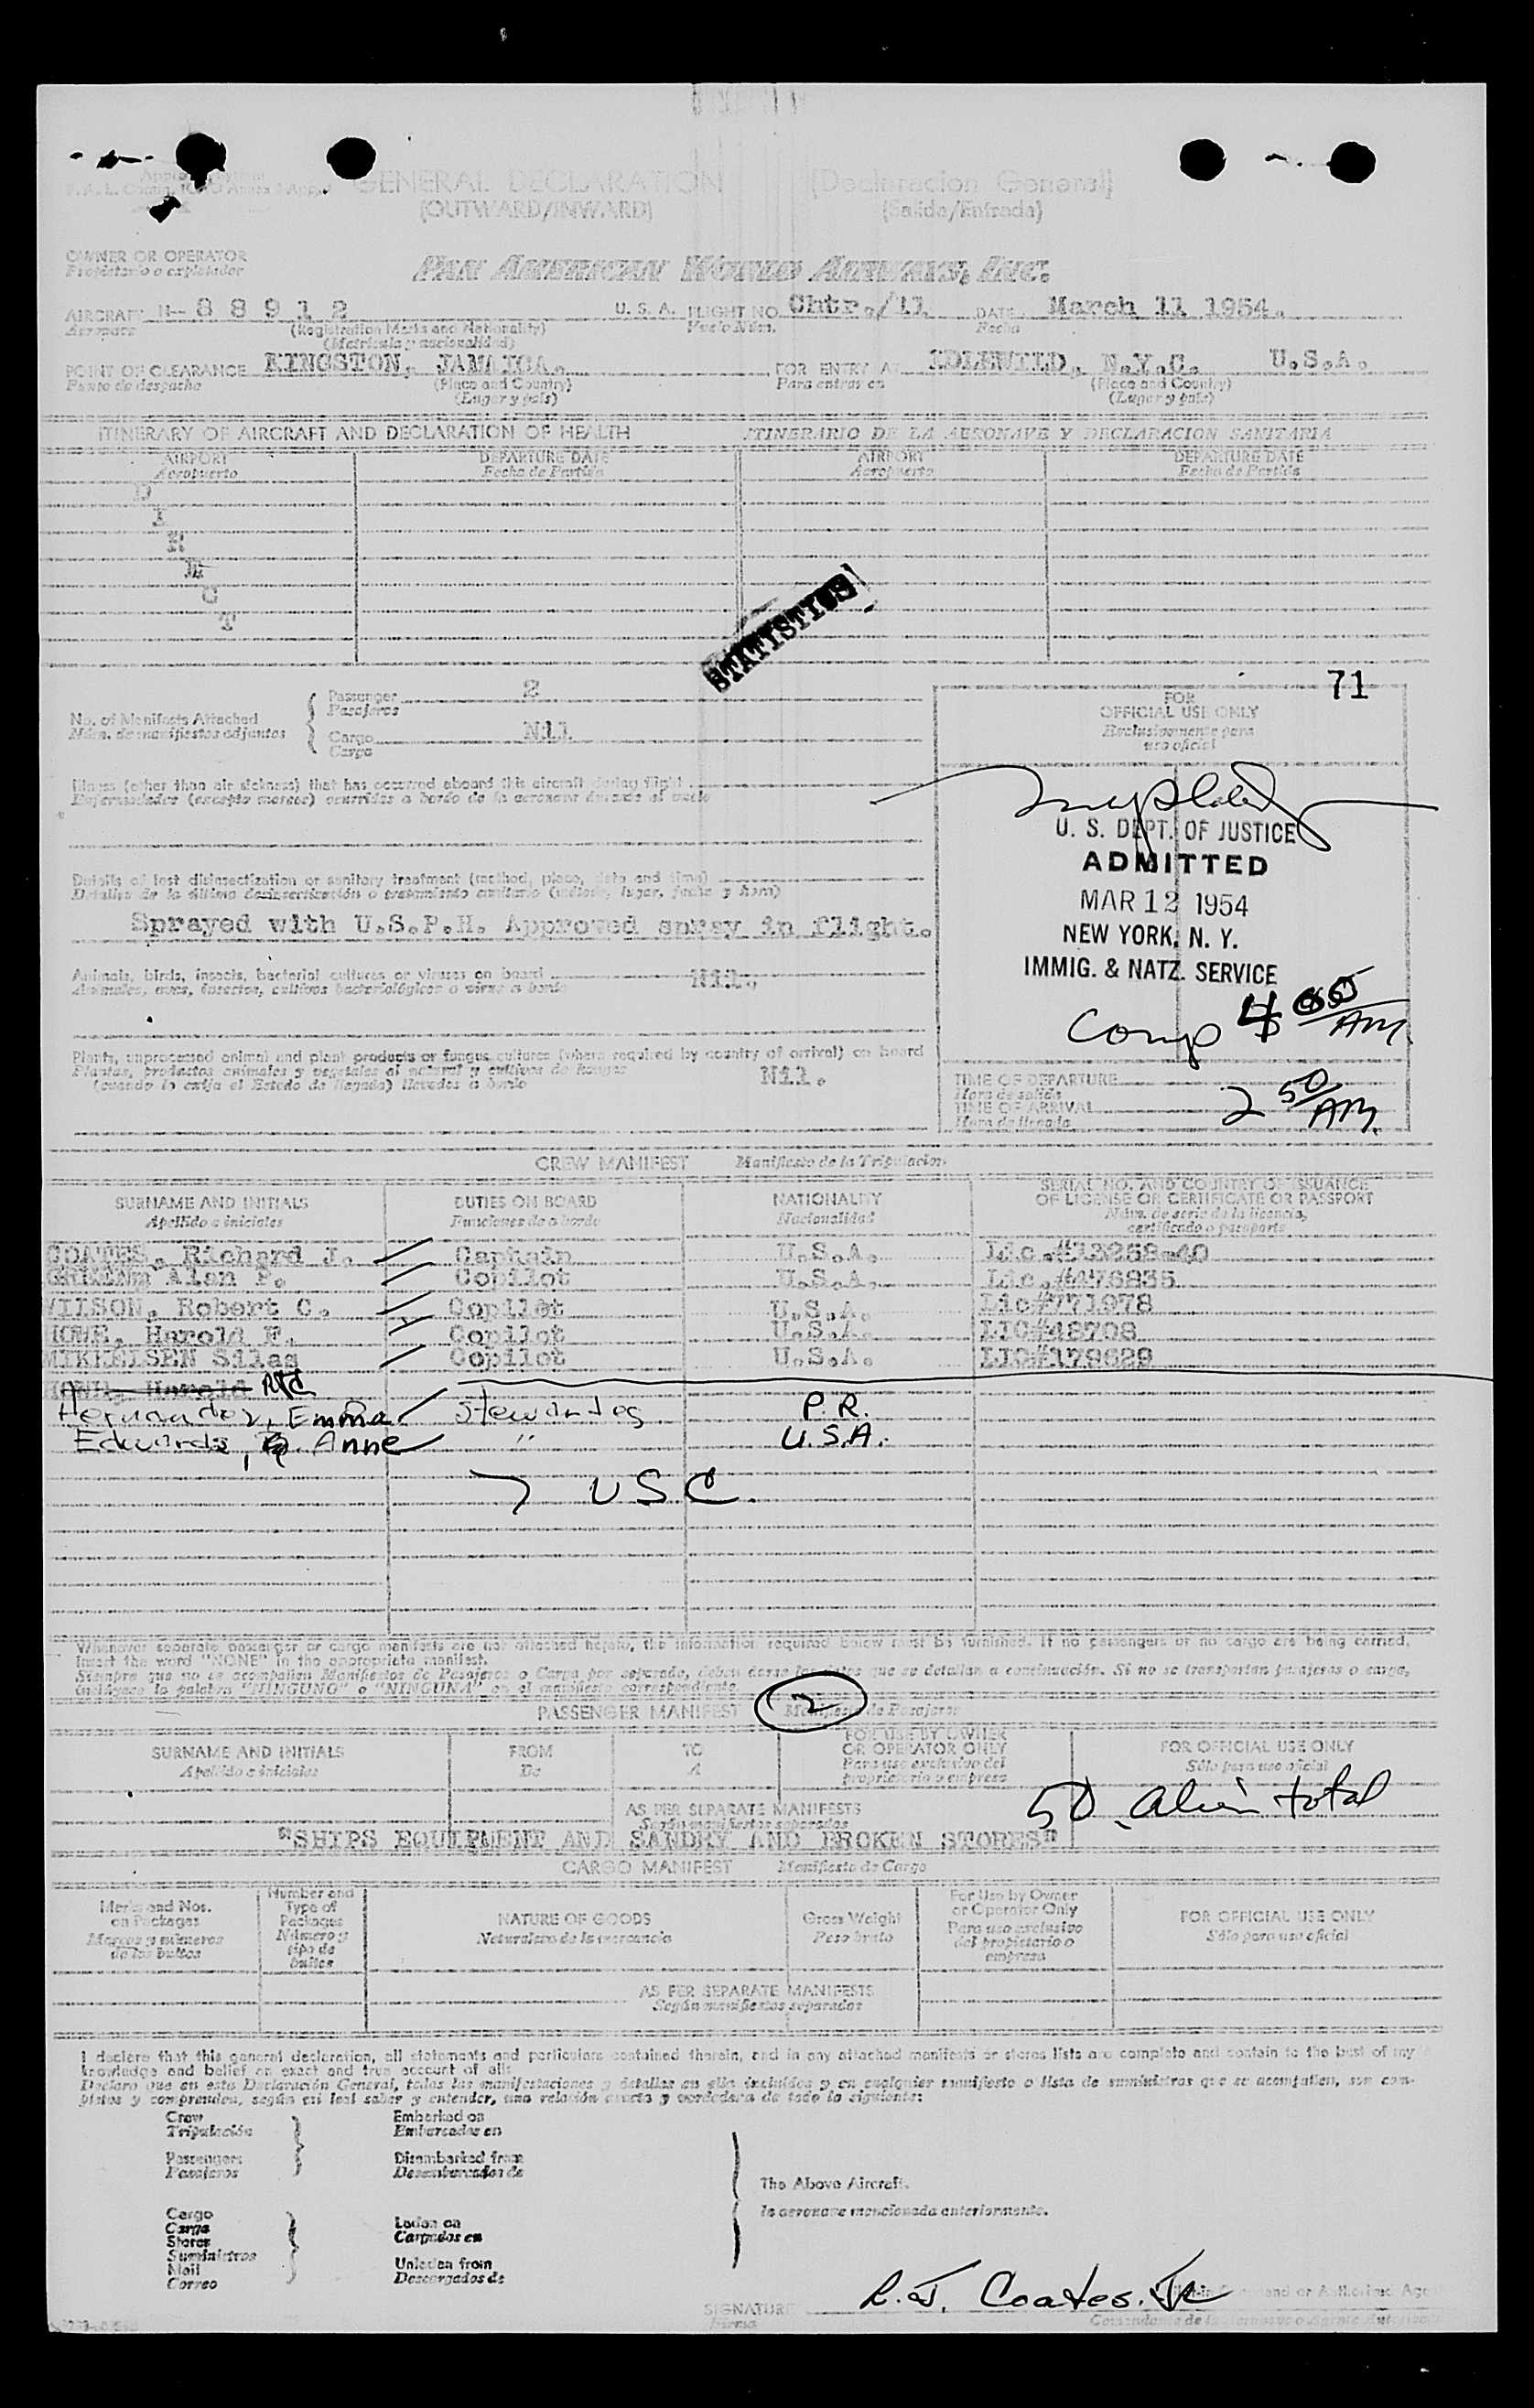 GENERAL DECLARATION (Declaracion General)
(OUTWARD/INWARD) (Salida/Entrada)
OWNER OR OPERATOR
Propietario o explotador
PAN AMERICAN WORLD AIRWAYS, INC.
AIRCRAFT N- 8 8 9 1 2 U. S. A. FLIGHT NO. Chtr./11 DATE March 11 1954.
Aeronave (Registration Marks and Nationality) Vuelo Núm. Fecha
(Matricula y nacionalidad)
POINT OF CLEARANCE KINGSTON, JAMAICA. FOR ENTRY AT IDLEWILD, N.Y.C. U.S.A.
Punto de despacho (Place and Country) Para entrar en (Place and Country)
(Lugar y país) (Lugar y país)
ITINERARY OF AIRCRAFT AND DECLARATION OF HEALTH ITINERARIO DE LA AERONAVE Y DECLARACION SANITARIA
AIRPORT DEPARTURE DATE AIRPORT DEPARTURE DATE
Aeropuerto Fecha de Partida Aeropuerto Fecha de Partida
D
I
R
E
C
T
STATISTICS
71
No. of Manifests Attached
Núm. de manifiestos adjuntos
Passenger 2
Pasajeros
Cargo Nil
Carga
FOR
OFFICIAL USE ONLY
Exclusivamente para
uso oficial
Illness (other than air sickness) that has occurred aboard this aircraft during flight
Enfermedades (excepto mareos) ocurridas a bordo de la aeronave durante el vuelo
U. S. DEPT. OF JUSTICE
ADMITTED
MAR 12 1954
NEW YORK, N. Y.
IMMIG. & NATZ. SERVICE
Comp 4 AM.
Details of last disinsectization or sanitary treatment (method, place, date and time)
Detalles de la última desinsectización o tratamiento sanitario (método, lugar, fecha y hora)
Sprayed with U.S.P.H. Approved spray in flight.
Animals, birds, insects, bacterial cultures or viruses on board Nil.
Animales, aves, insectos, cultivos bacteriológicos o virus a bordo
Plants, unprocessed animal and plant products or fungus cultures (where required by country of arrival) on board
Plantas, productos animales y vegetales al natural y cultivos de hongos Nil.
(cuando lo exija el Estado de llegada) llevados a bordo
TIME OF DEPARTURE
Hora de salida
TIME OF ARRIVAL 2 50 AM.
Hora de llegada
CREW MANIFEST Manifiesto de la Tripulacion
SURNAME AND INITIALS DUTIES ON BOARD NATIONALITY SERIAL NO. AND COUNTRY OF ISSUANCE
OF LICENSE OR CERTIFICATE OR PASSPORT
Apellido e iniciales Funciones de a bordo Nacionalidad Núm. de serie de la licencia,
certificado o pasaporte
COATES, Richard J. Captain U.S.A. Lic.#13258-40
Alan P. Copilot U.S.A. Lic.#476835
WILSON, Robert C. Copilot U.S.A. Lic#771978
HOWE, Harold F. Copilot U.S.A. LIC#48708
MIKKELSEN Silas Copilot U.S.A. LIC#179629
Hernandez, Emma Stewardess P.R.
Edwards, Anne " U.S.A.
7 USC.
Whenever separate passenger or cargo manifests are not attached hereto, the information required below must be furnished. If no passengers or no cargo are being carried,
insert the word "NONE" in the appropriate manifest.
Siempre que no se acompañen Manifiestos de Pasajeros o Carga por separado, deben darse los datos que se detallan a continuación. Si no se transportan pasajeros o carga,
inclúyase la palabra "NINGUNO" o "NINGUNA" en el manifiesto correspondiente.
PASSENGER MANIFEST 2 Manifiesto de Pasajeros
SURNAME AND INITIALS FROM TO FOR USE BY OWNER
OR OPERATOR ONLY FOR OFFICIAL USE ONLY
Apellido e iniciales De A Para uso exclusivo del
propietario o empresa Sólo para uso oficial
AS PER SEPARATE MANIFESTS
Según manifiestos separados
50 Alien total
"SHIPS EQUIPMENT AND SANDRY AND BROKEN STORES"
CARGO MANIFEST Manifiesto de Cargo
Marks and Nos.
on Packages
Marcas y números
de los bultos
Number and
Type of
Packages
Número y
tipo de
bultos
NATURE OF GOODS
Naturaleza de la mercancía
Gross Weight
Peso bruto
For Use by Owner
or Operator Only
Para uso exclusivo
del propietario o
empresa
FOR OFFICIAL USE ONLY
Sólo para uso oficial
AS PER SEPARATE MANIFESTS
Según manifiestos separados
I declare that this general declaration, all statements and particulars contained therein, and in any attached manifests or stores lists are complete and contain to the best of my
knowledge and belief an exact and true account of all:
Declaro que en esta Declaración General, todas las manifestaciones y detalles en ella incluídos y en cualquier manifiesto o lista de suministros que se acompañen, son com-
pletos y comprenden, según mi leal saber y entender, una relación exacta y verdadera de todo lo siguiente:
Crew
Tripulación
Passengers
Pasajeros
Embarked on
Embarcados en
Disembarked from
Desembarcados de
The Above Aircraft.
la aeronave mencionada anteriormente.
Cargo
Carga
Stores
Suministros
Mail
Correo
Laden on
Cargados en
Unladen from
Descargados de
SIGNATURE R. J. Coates. Jr
Firma